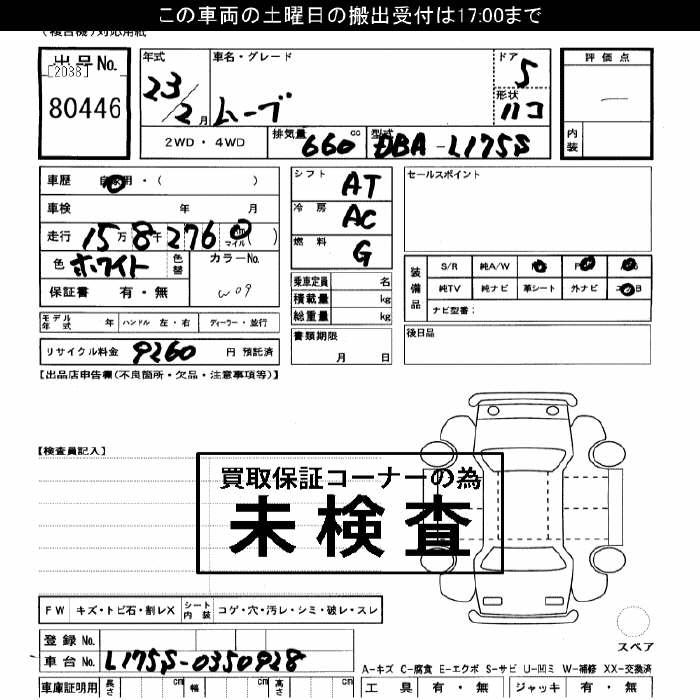 この車両の土曜日の搬出受付は17:00まで
(複合機)対応用紙
出品No.
[2038]
80446
年式
23/2月
車名・グレード
ムーブ
ドア
5
形状
ハコ
2WD・4WD
排気量
660cc
型式
DBA-L175S
評価点
内装
車歴 自家用・( )
車検 年 月
走行 15万8千276
マイル ( )
色 ホワイト
色替
カラーNo.
W09
保証書 有・無
シフト
AT
冷房
AC
燃料
G
乗車定員 名
積載量 kg
総重量 kg
書類期限
月 日
セールスポイント
装備品
S/R 純A/W
純TV 純ナビ 革シート 外ナビ
ナビ型番:
後日品
モデル年式 年 ハンドル 左・右 ディーラー・並行
リサイクル料金 9260 円 預託済
【出品店申告欄(不良箇所・欠品・注意事項等)】
【検査員記入】
買取保証コーナーの為
未検査
FW キズ・トビ石・割レX
シート内装 コゲ・穴・汚レ・シミ・破レ・スレ
スペア
登録No.
車台No. L175S-0350928
A-キズ C-腐食 E-エクボ S-サビ U-凹ミ W-補修 XX-交換済
車庫証明用 長さ cm 幅 cm 高さ cm
工具 有・無 ジャッキ 有・無